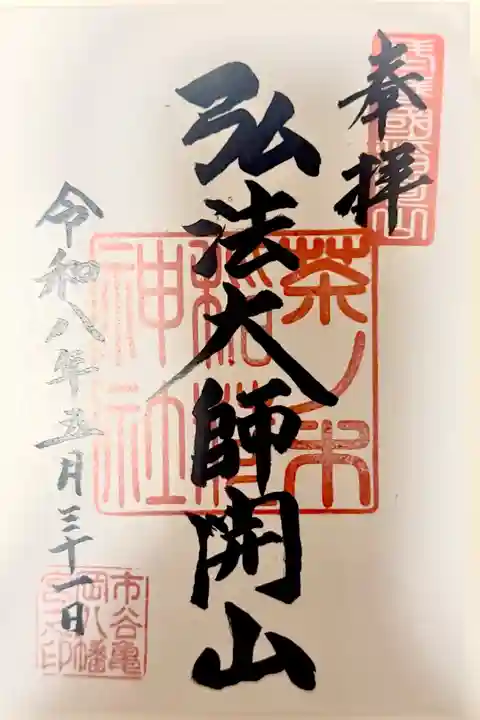 奉拝
弘法大師開山
茶ノ木
稲荷
神社
令和八年五月三十一日
市谷亀
岡八幡
宮之印